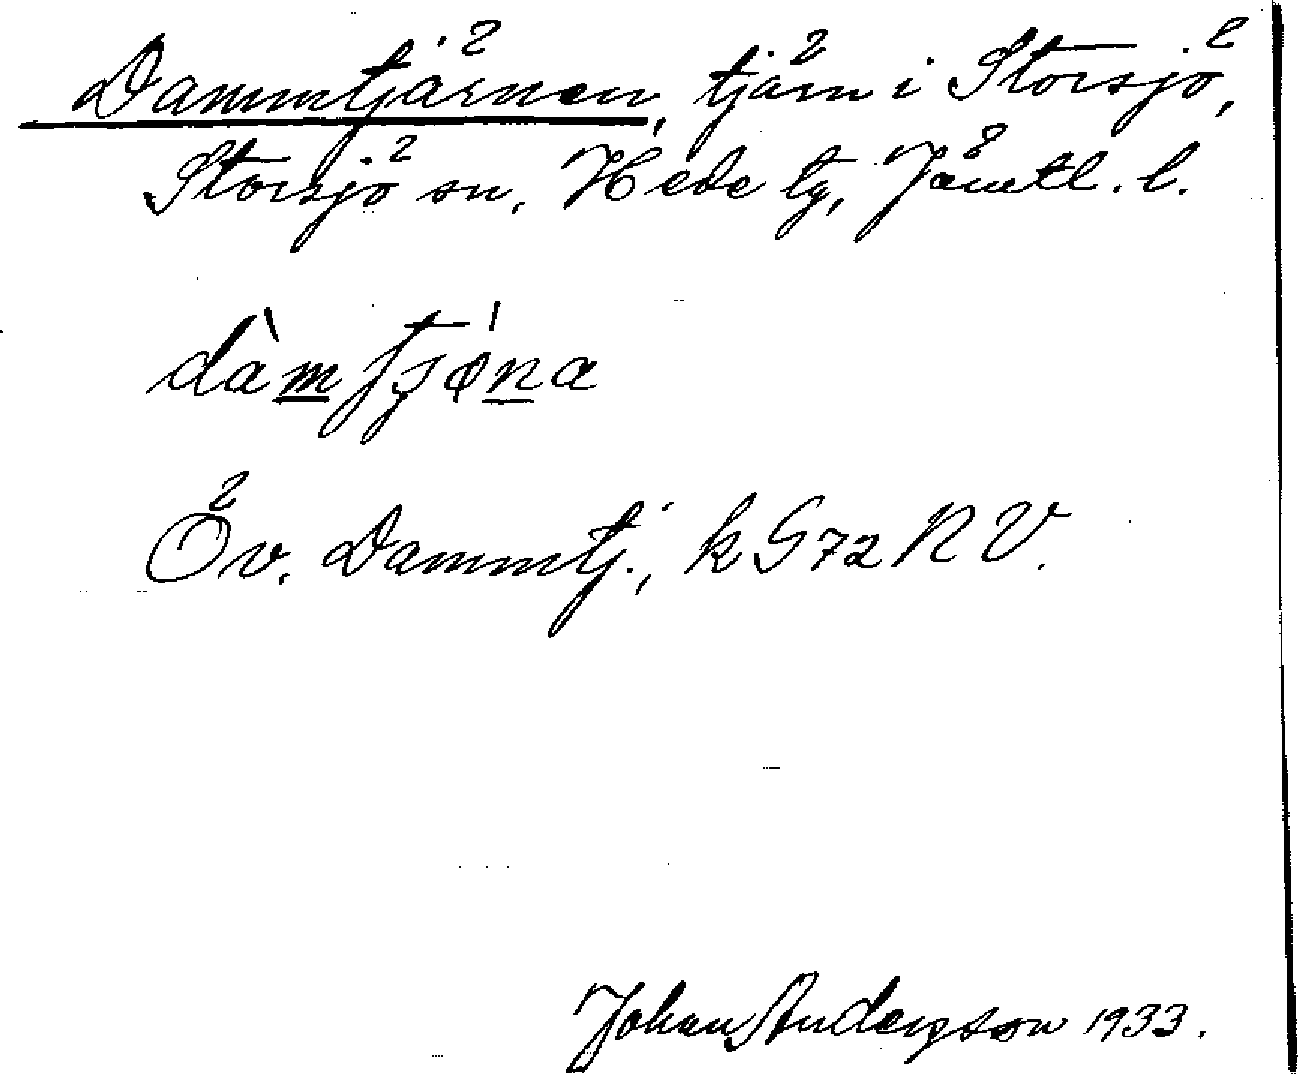 Dammtjärnen, tjärn i Storsjö,
Storsjö sn, Hede tg, Jämtl. l.
Öv. Dammtj., k G72 NV.
Johan Andersson 1933.